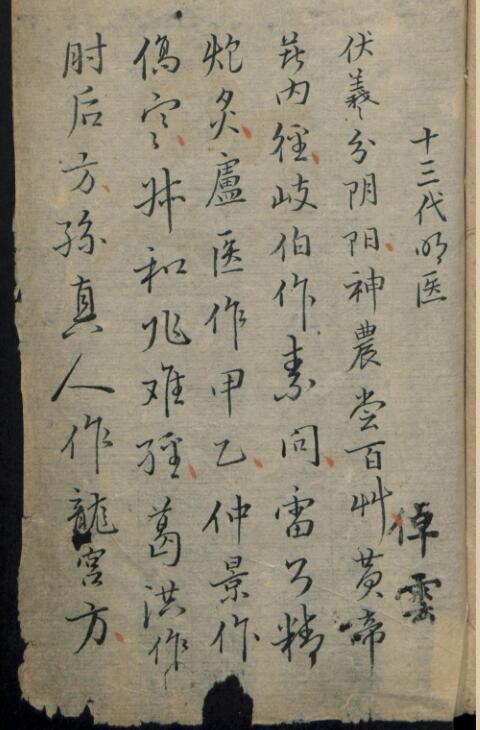 十三代明医
倬雲
伏羲分阴阳神農尝百艸黄啼
內徑岐伯作素问雷公精
炮炙盧医作甲乙仲景作
傷寒叔和作难經葛洪作
肘后方孫真人作龍宮方